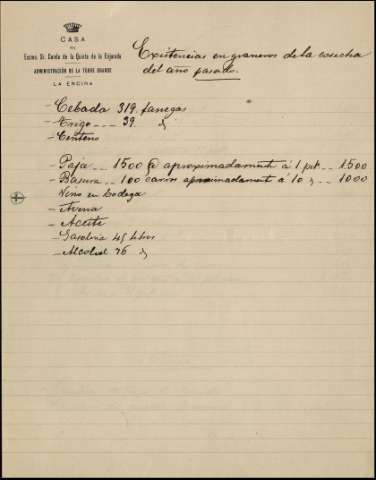 CASA
DEL
Excmo. Sr. Conde de la Quinta de la Enjarada
ADMINISTRACIÓN DE LA TORRE GRANDE
LA ENCINA
Existencias en graneros de la cosecha
del año pasado.
- Cebada 319. fanegas
- Trigo - - - 39. "
- Centeno
- Paja - 1500 @ aproximadamente á 1 pta - - 1500
- Basura - 100 carros aproximadamente á 10 " - - 1000
Vino en bodega
- Avena
- Aceite
- Gasolina 45 litros
- Alcohol 76 "